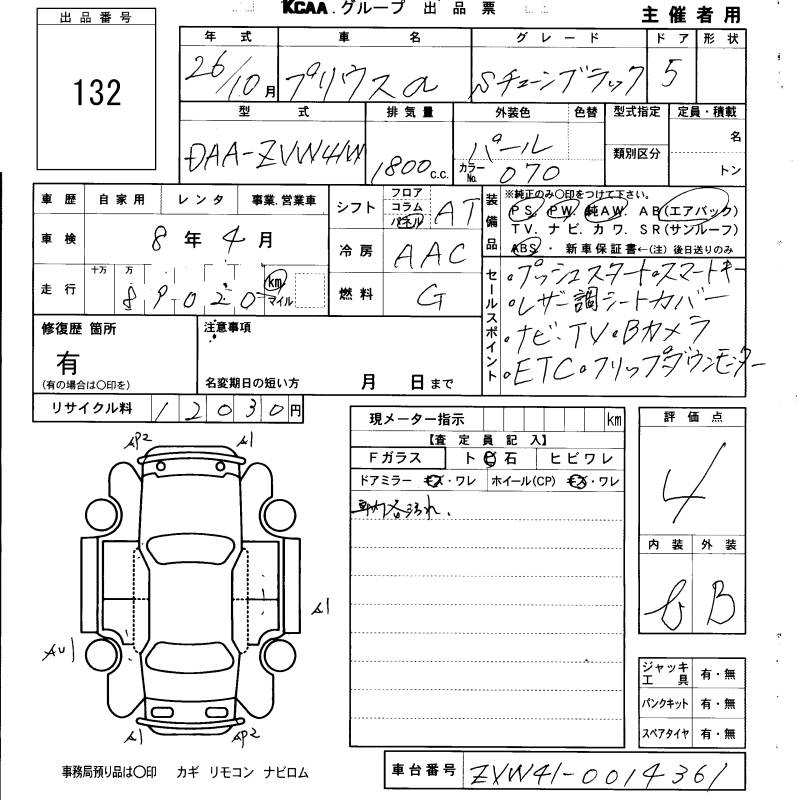 KCAA.グループ 出品票
主催者用
出品番号
132
年式 車名 グレード ドア 形状
26/10月 プリウスα Sチューンブラック 5
型式 排気量 外装色 色替 型式指定 定員・積載
DAA-ZVW41W 1800c.c. パール 名
カラーNo. 070 類別区分 トン
車歴 自家用 レンタ 事業.営業車
車検 8年4月
走行 十万 万 89020 km マイル
シフト フロア コラム パネル AT
冷房 AAC
燃料 G
装備品
※純正のみ○印をつけて下さい。
PS. PW. 純AW. AB(エアバック)
TV. ナビ. カワ. SR(サンルーフ)
ABS ・ 新車保証書←(注) 後日送りのみ
セールスポイント
・プッシュスタート・スマートキー
・レザー調シートカバー
・ナビ・TV・Bカメラ
・ETC・フリップダウンモニター
修復歴 箇所
有
(有の場合は○印を)
注意事項
名変期日の短い方 月 日まで
リサイクル料 12030円
現メーター指示 km
【査定員記入】
Fガラス トビ石 ヒビワレ
ドアミラー キズ・ワレ ホイール(CP) キズ・ワレ
車内各汚れ.
評価点
4
内装 外装
B
ジャッキ工具 有・無
パンクキット 有・無
スペアタイヤ 有・無
AP2 A1
A1
AU1
A1 AP2
事務局預り品は○印 カギ リモコン ナビロム
車台番号 ZVW41-0014361